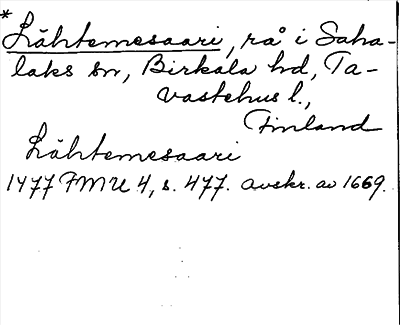 *Lähtemesaari, rå i Saha-
laks sn, Birkala hd, Ta-
vastehus l.,
Finland
Lähtemesaari
1477 FMU 4, s. 477. avskr. av 1669.